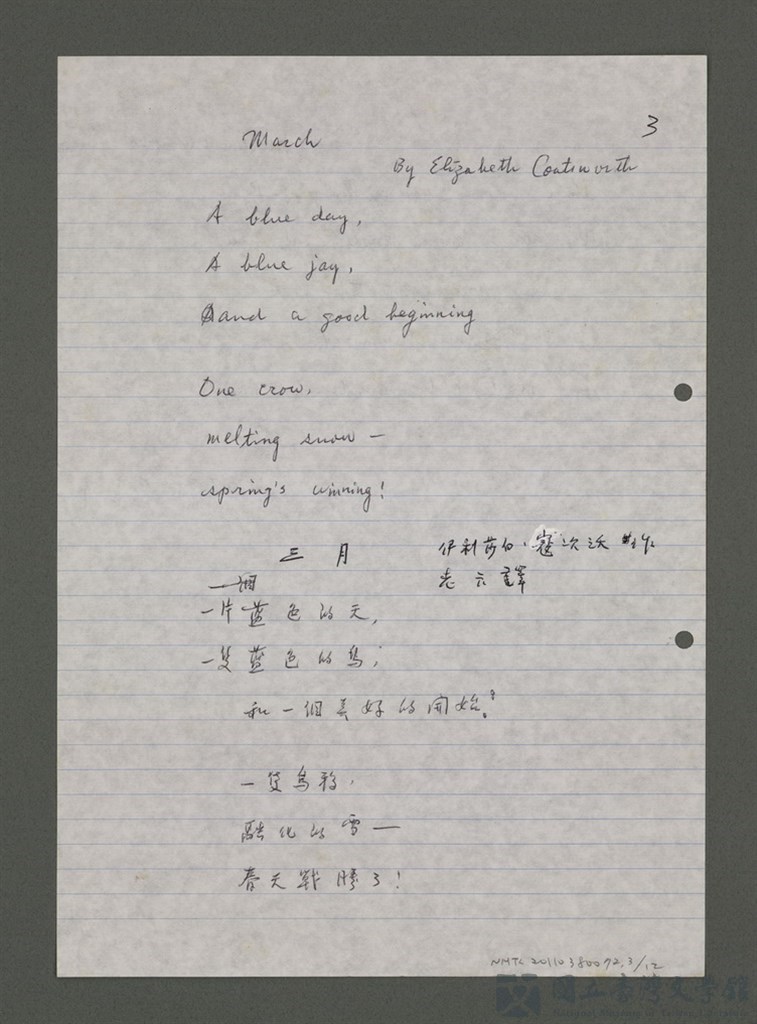 3
March
By Elizabeth Coatsworth
A blue day,
A blue jay,
and a good beginning
One crow,
melting snow —
spring's winning!
三月
伊利莎白·寇次沃斯作
志云譯
一個
一片藍色的天,
一隻藍色的鳥;
和一個美好的開始。
一隻烏鴉,
融化的雪——
春天戰勝了!
NMTL 20110380072.3/12
國立臺灣文學館
National Museum of Taiwan Literature